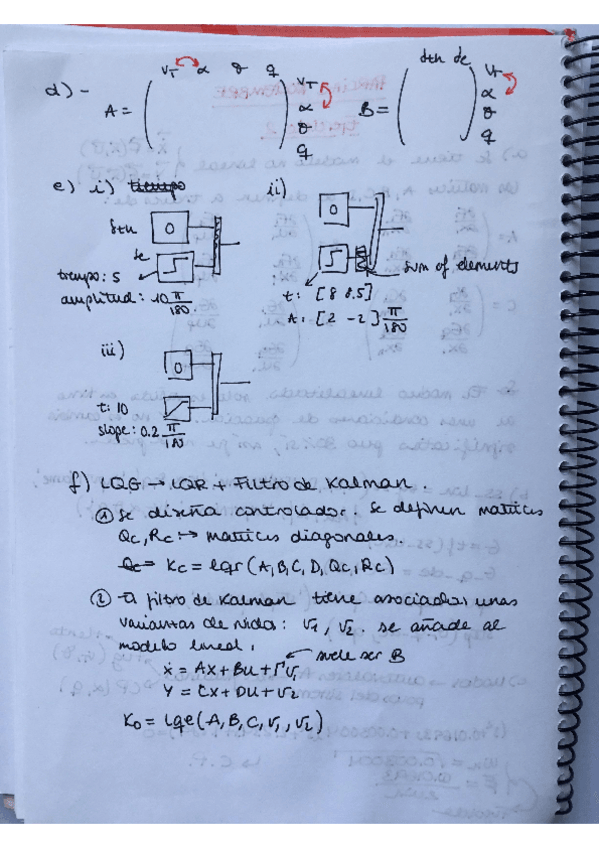 d) -
V_T α θ q
A = ( ) V_T α θ q
δth δe
B = ( ) V_T α θ q
e) i) tiempo
δth 0
δe
tiempo: 5
amplitud: 10 π/180
ii)
0
sum of elements
t: [8 8.5]
A: [2 -2] π/180
iii)
0
t: 10
slope: 0.2 π/180
f) LQG → LQR + Filtro de Kalman.
① Se diseña controlador. Se definen matrices
Qc, Rc → matrices diagonales.
Qc = Kc = lqr (A, B, C, D, Qc, Rc)
② El filtro de Kalman tiene asociadas unas
varianzas de ruido: V1, V2. se añade al
modelo lineal:
suele ser B
ẋ = Ax + Bu + Γv1
Y = Cx + Du + v2
Ko = lqe (A, B, C, V1, V2)